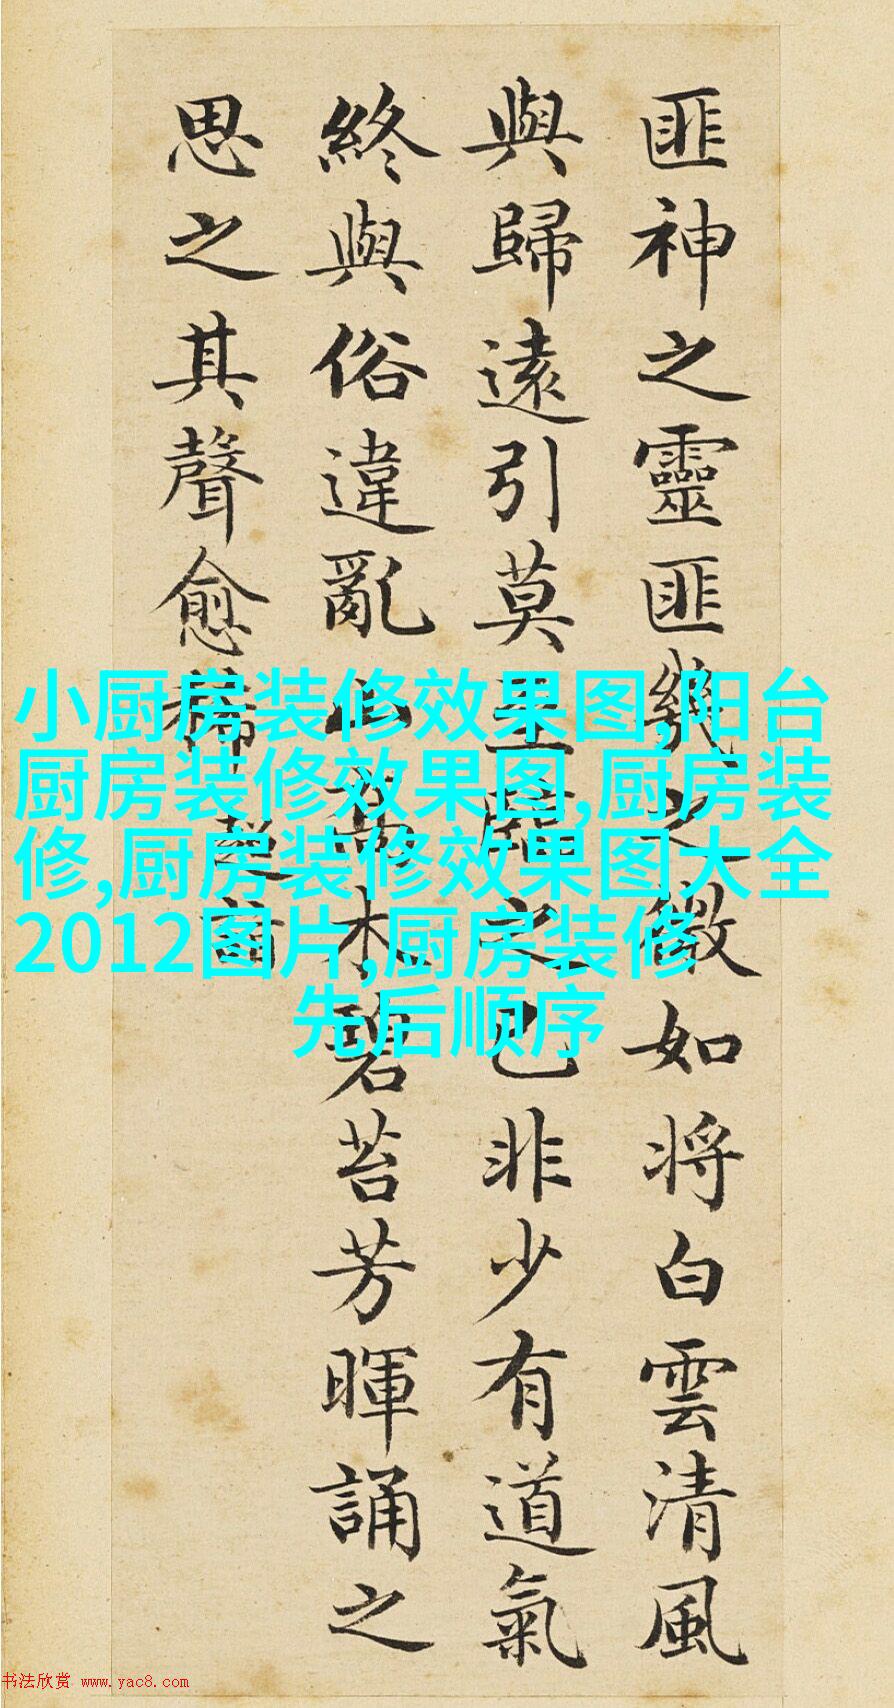 匪神之靈匪幾之微如將白雲清風
與歸遠引莫至臨之已非少有道氣
終與俗違亂山高木碧苔芳暉誦之
思之其聲愈稀
小厨房装修效果图,阳台
厨房装修效果图,厨房装
修,厨房装修效果图大全
2012图片,厨房装修
先后顺序
书法欣赏 www.yac8.com